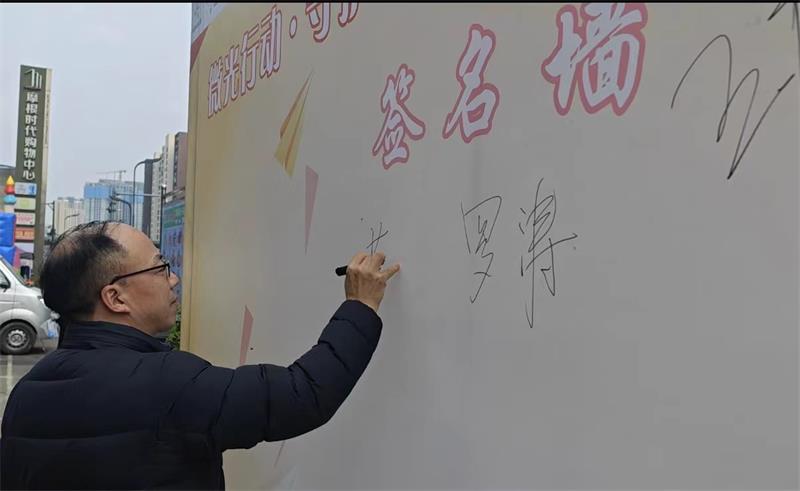 微光行动·守护
签名墙
摩根时代购物中心
罗涛